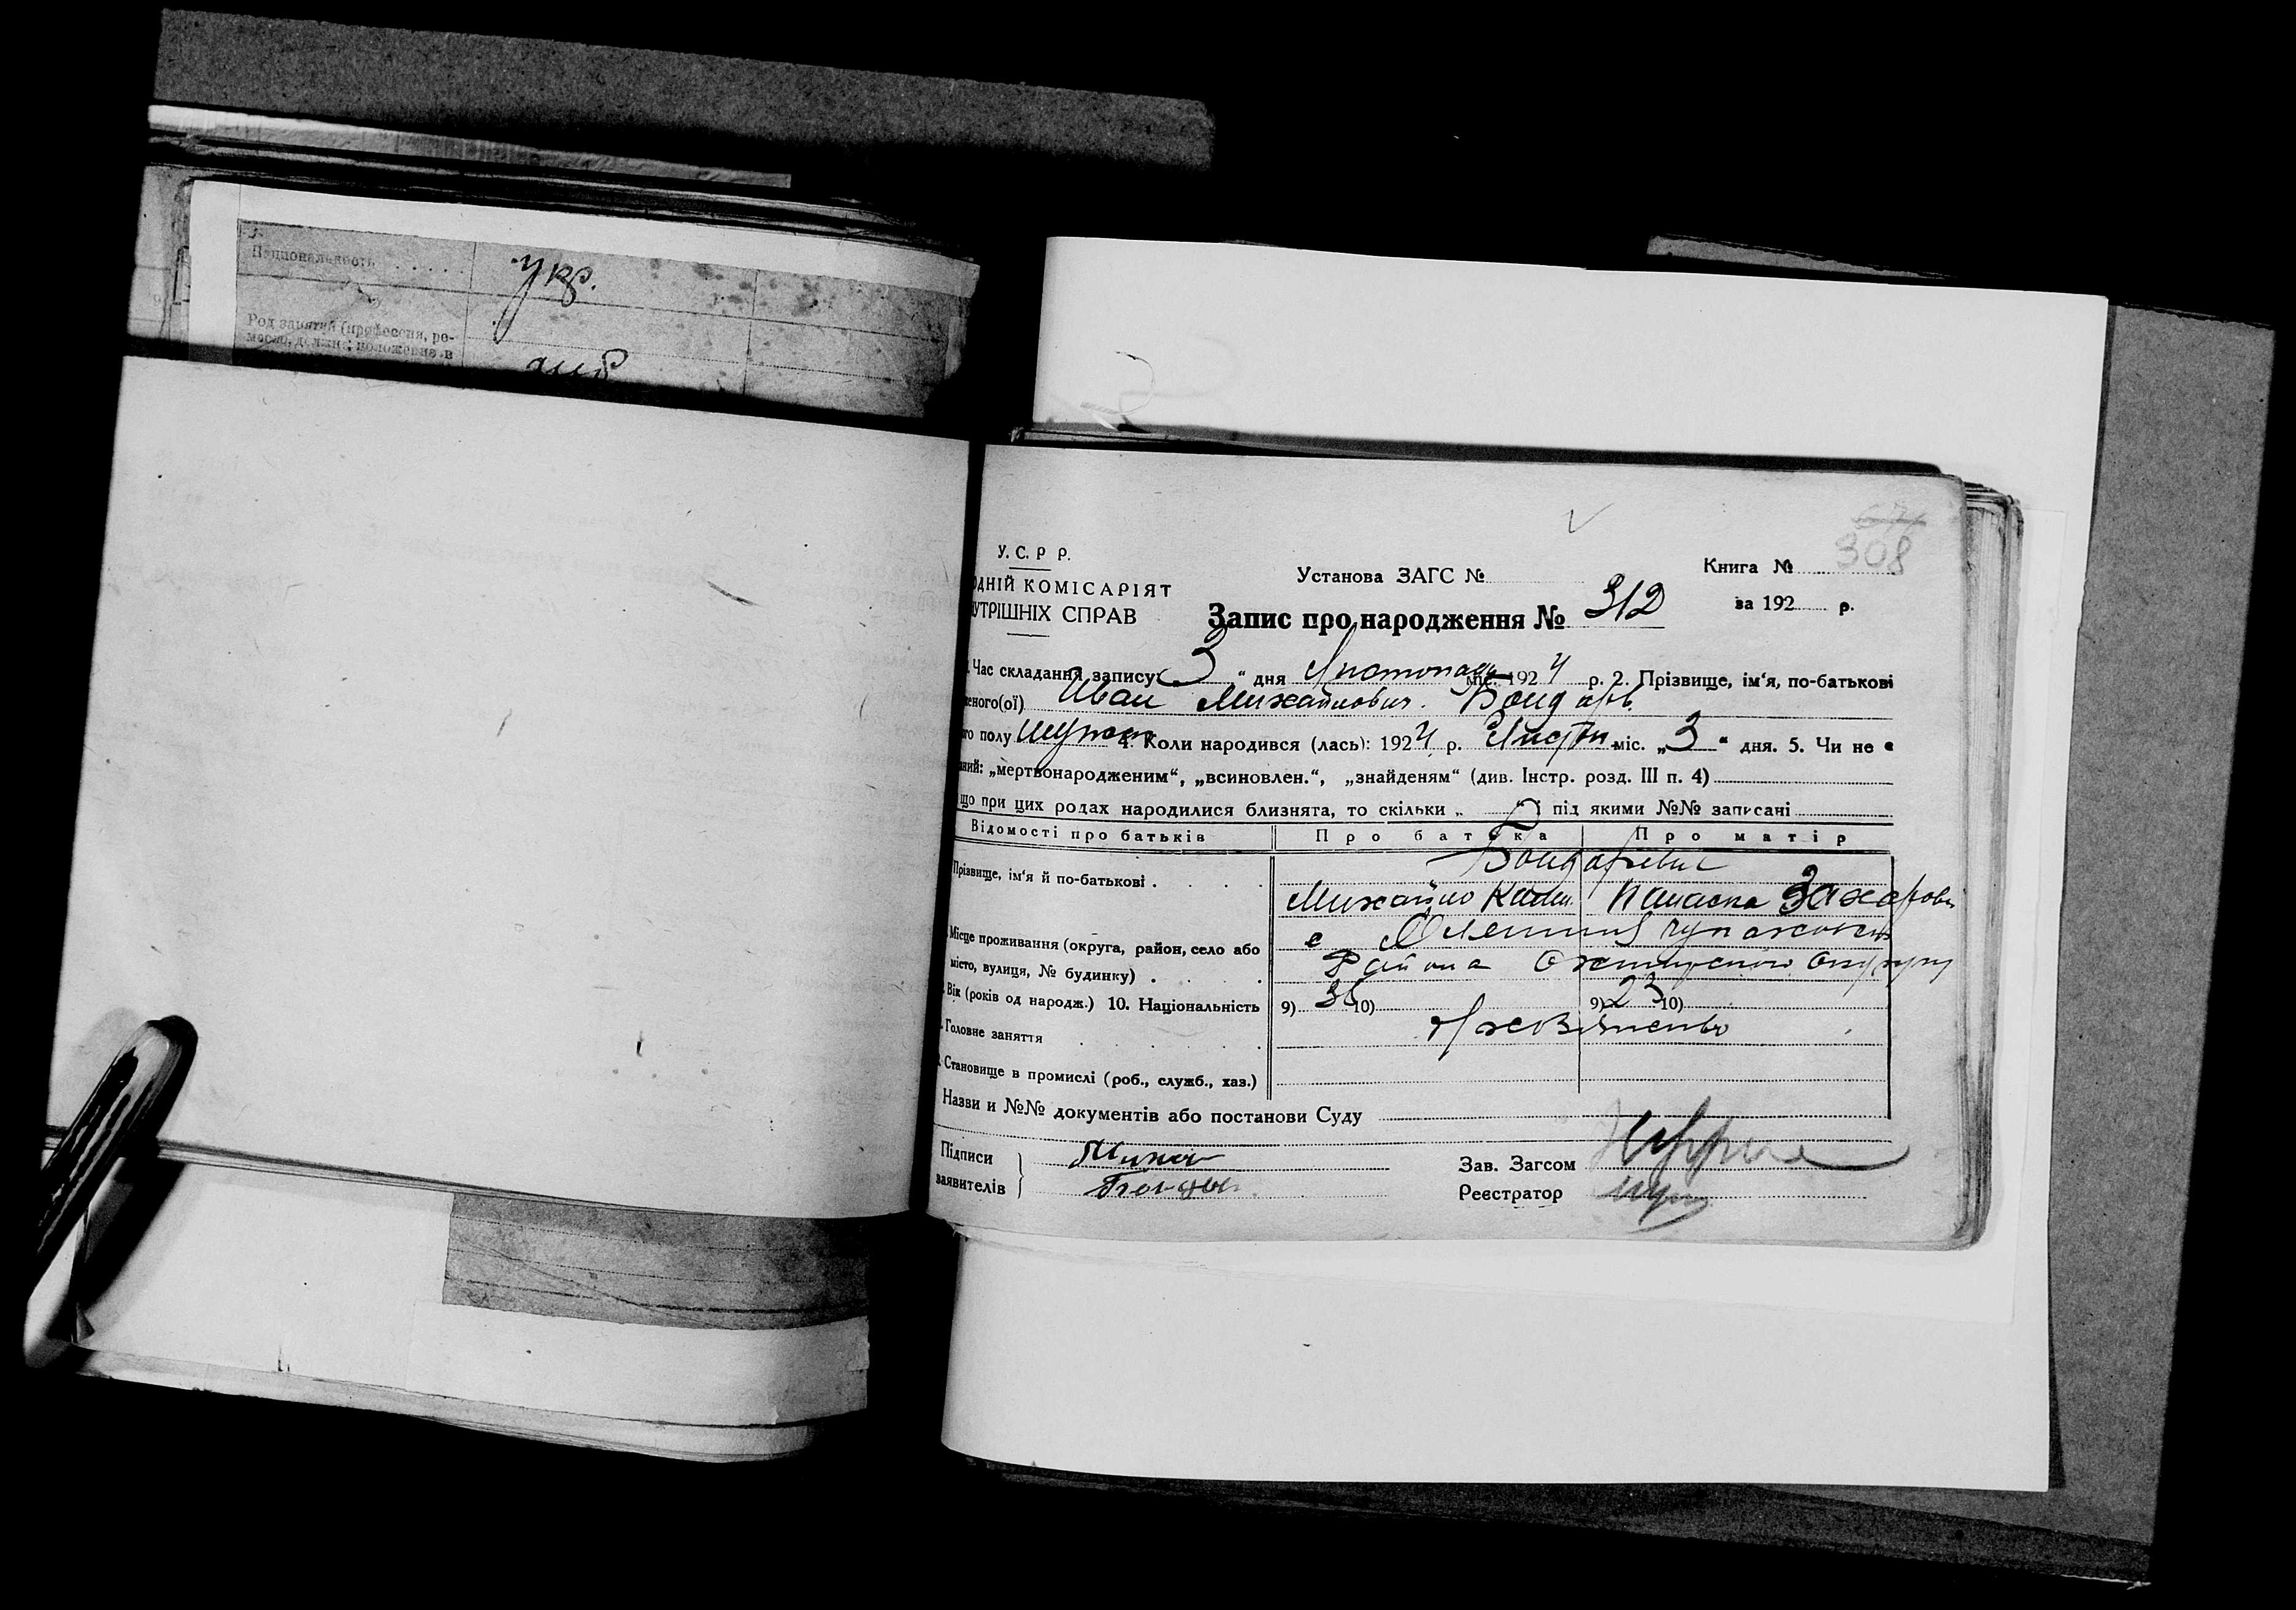 Национальность . . . . .
укр.
Род занятий (профессия, ре-
месло, должн; положение в
У. С. Р Р.
ОДНІЙ КОМІСАРІЯТ
УТРІШНІХ СПРАВ
Установа ЗАГС №
Запис про народження № 312
Книга №
за 192 р.
674
308
Час складання запису 3 “ дня Листопада міс. 1924 р. 2. Прізвище, ім‘я, по-батькові
еного(ої) Иван Михайлович. Бондарв.
го полу 4. Коли народився (лась): 1924 р. міс. „ 3 “ дня. 5. Чи не є
аний: „мертвонародженим“, „всиновлен.“, „знайденям“ (див. Інстр. розд. III п. 4)
що при цих родах народилися близнята, то скільки „ “ і під якими №№ записані
Відомості про батьків Про батька Про матір
Прізвище, ім‘я й по-батькові . . . .
Бондаревис
Михайло Калин. Параска Захарови
Місце проживання (округа, район, село або
місто, вулиця, № будинку) . . .
с
Района Охтирської Округи
Вік (років од народж.) 10. Національність 9) 10) 9) 23 10)
Головне заняття . . . . .
Становище в промислі (роб., служб., хаз.)
Назви и №№ документів або постанови Суду
Підписи
заявителів
Зав. Загсом
Реєстратор